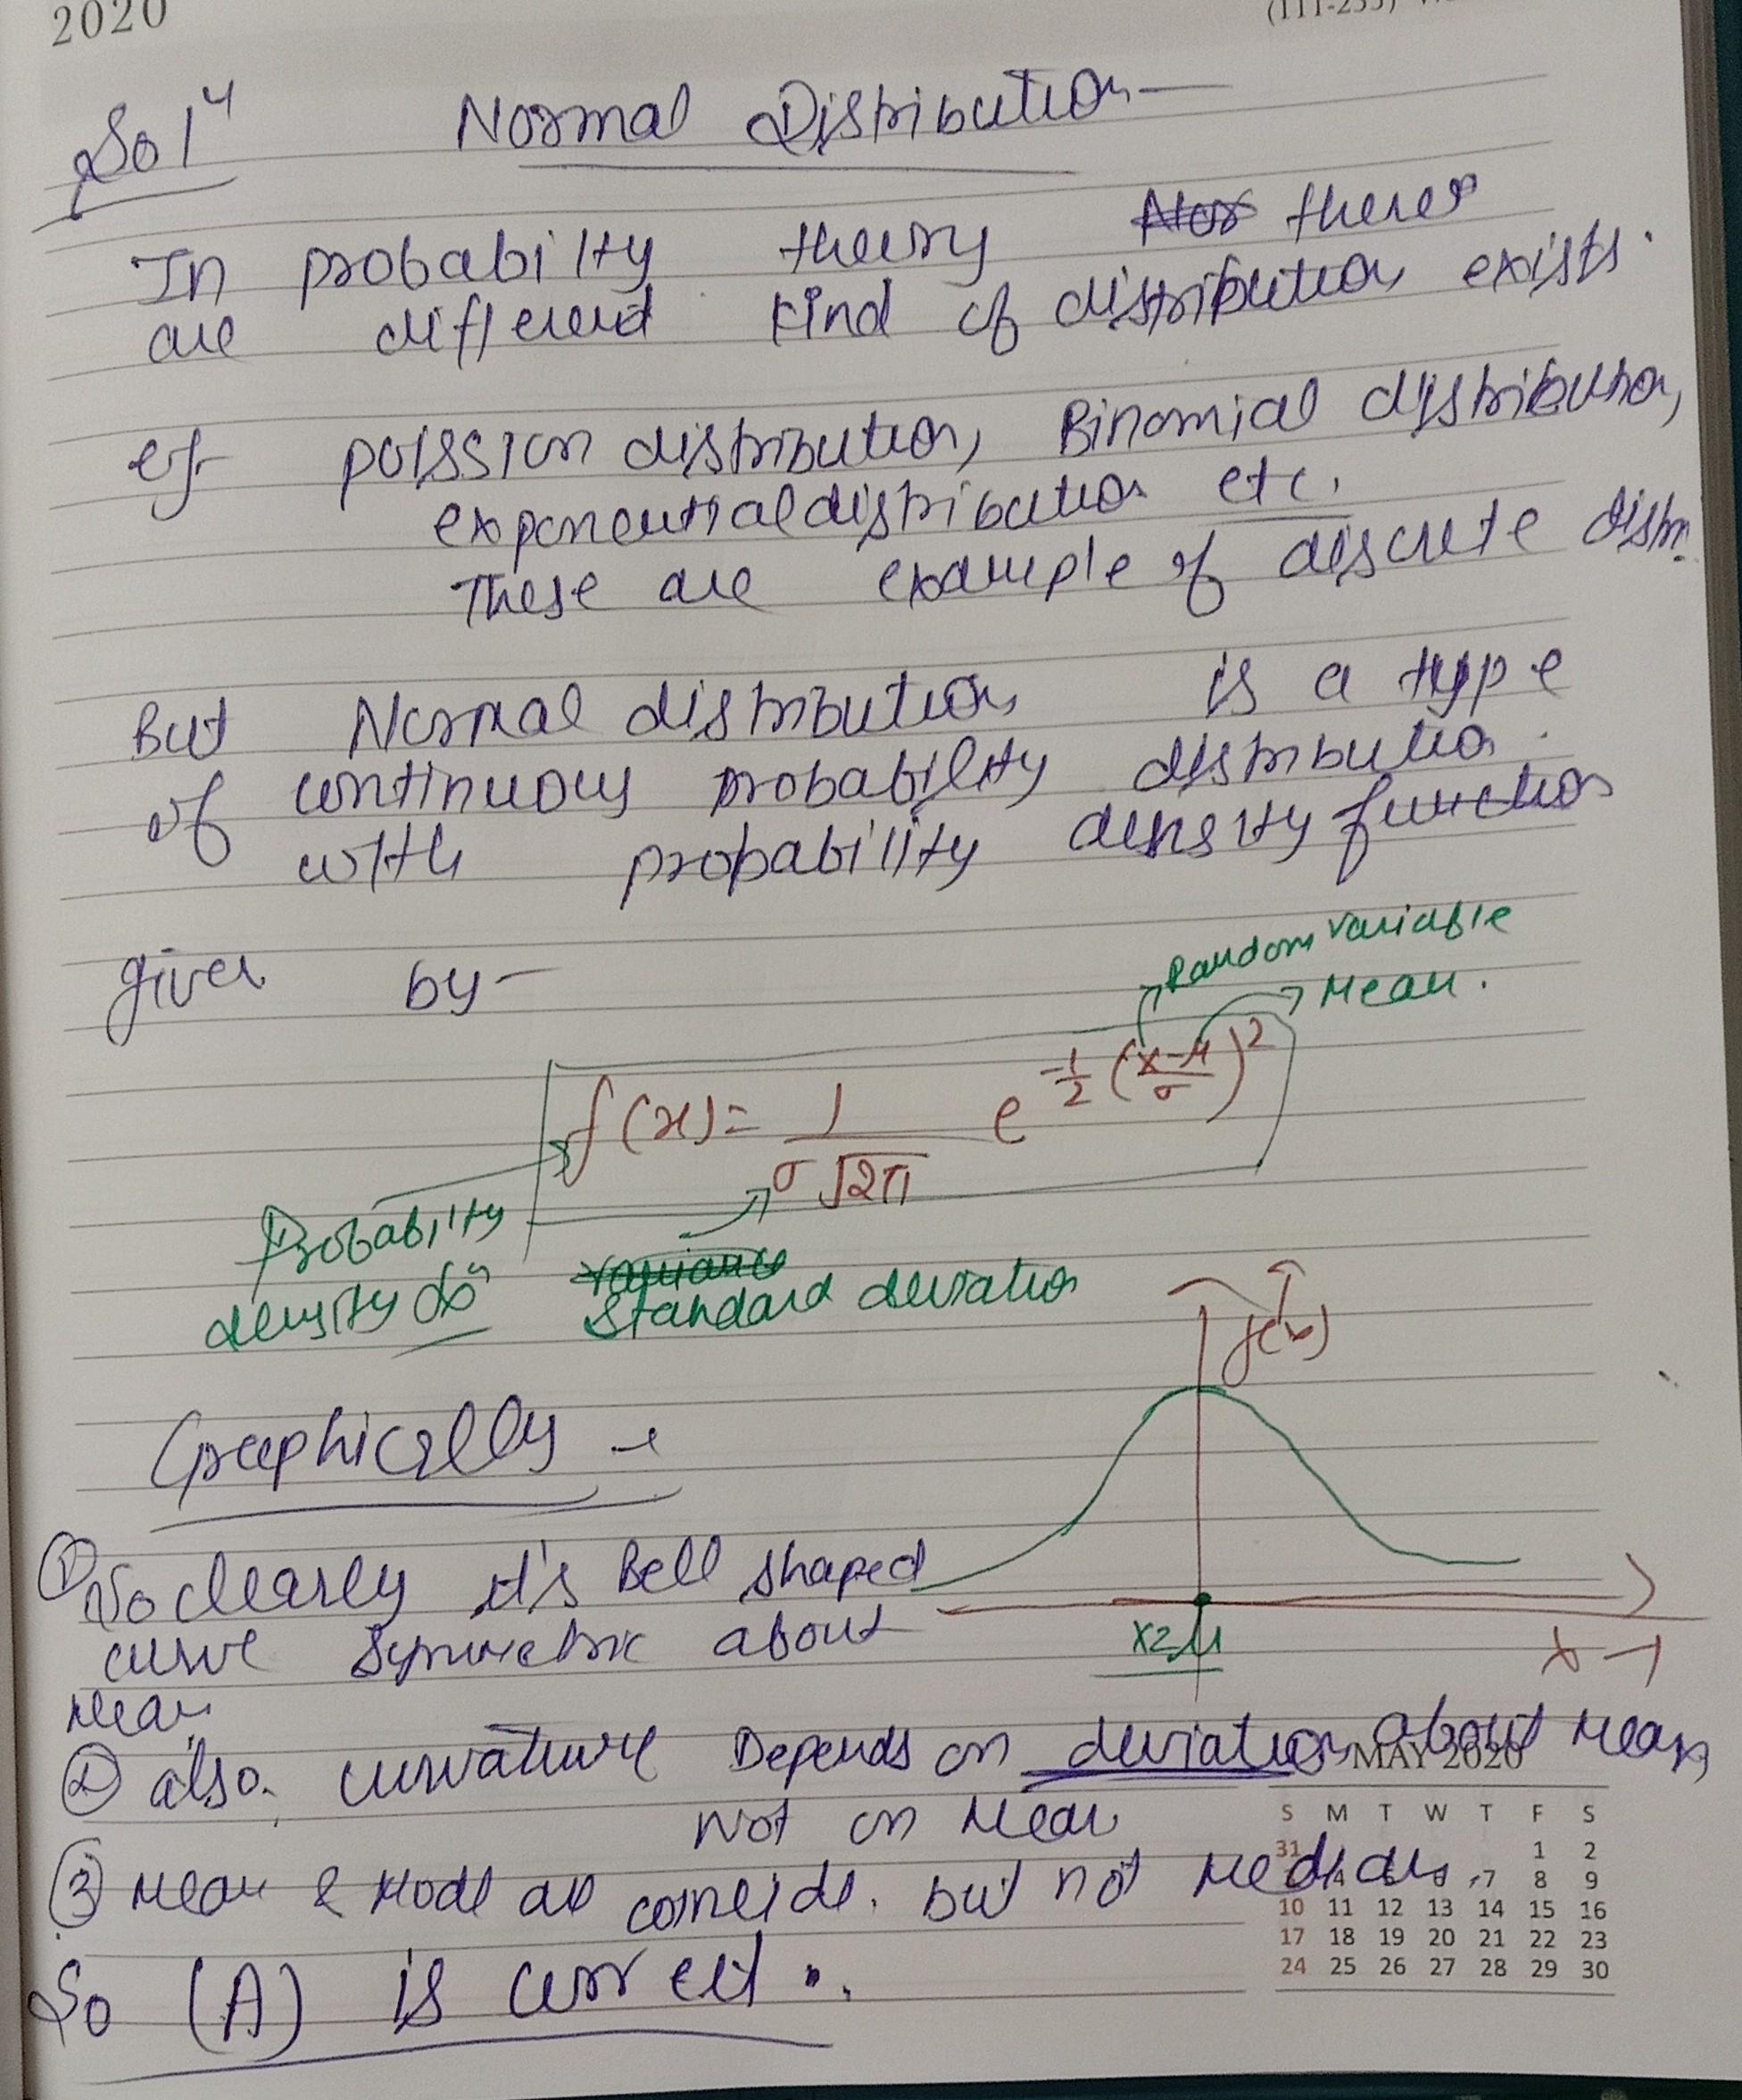 2020
Solⁿ Normal Distribution—
In probability theory there
are different kind of distribution exists.
eg- poission distribution, Binomial distribution,
exponential distribution etc.
These are example of discrete distn.
But Normal distribution is a type
of continuous probability distribution.
with probability density function
given by-
Random variable
Mean.
f(x) = 1/(σ√2π) e^(-1/2 ((x-μ)/σ)^2)
Probability
density
variance
Standard deviation
f(x)
Graphically
① So clearly it's Bell shaped
curve symmetric about
Mean
x=μ
x →
② also, curvature Depends on deviation about Mean,
Not on Mean
③ Mean & Mode are coincide, but not Median.
So (A) is correct.
MAY 2020
S M T W T F S
31 1 2
4 7 8 9
10 11 12 13 14 15 16
17 18 19 20 21 22 23
24 25 26 27 28 29 30